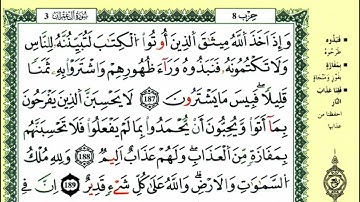 حزب 8
سورة آل عمران 3
وَإِذَ اَخَذَ اَللَّهُ مِيثَٰقَ اَلذِينَ أُوتُوا اُلْكِتَٰبَ لَتُبَيِّنُنَّهُۥ لِلنَّاسِ
وَلَا تَكْتُمُونَهُۥ فَنَبَذُوهُ وَرَآءَ ظُهُورِهِمْ وَاشْتَرَوْا بِهِۦ ثَمَناً
قَلِيلًا فَبِيسَ مَا يَشْتَرُونَ 187 لَا يَحْسِبَنَّ اَلذِينَ يَفْرَحُونَ
بِمَآ أَتَوا وَّيُحِبُّونَ أَنْ يُّحْمَدُوا بِمَا لَمْ يَفْعَلُوا فَلَا تَحْسِبَنَّهُم
بِمَفَازَةٍ مِّنَ اَلْعَذَابِ وَلَهُمْ عَذَابٌ اَلِيمٌ 188 وَلِلهِ مُلْكُ
السَّمَٰوَٰتِ وَالَارْضِ وَاللَّهُ عَلَىٰ كُلِّ شَيْءٍ قَدِيرٌ 189 إِنَّ فِي
فَنَبَذُوهُ
طرحوه
بِمَفَازَةٍ
بفوز ومنجاة
فَقِنَا عَذَابَ
احفظنا من
عذاب